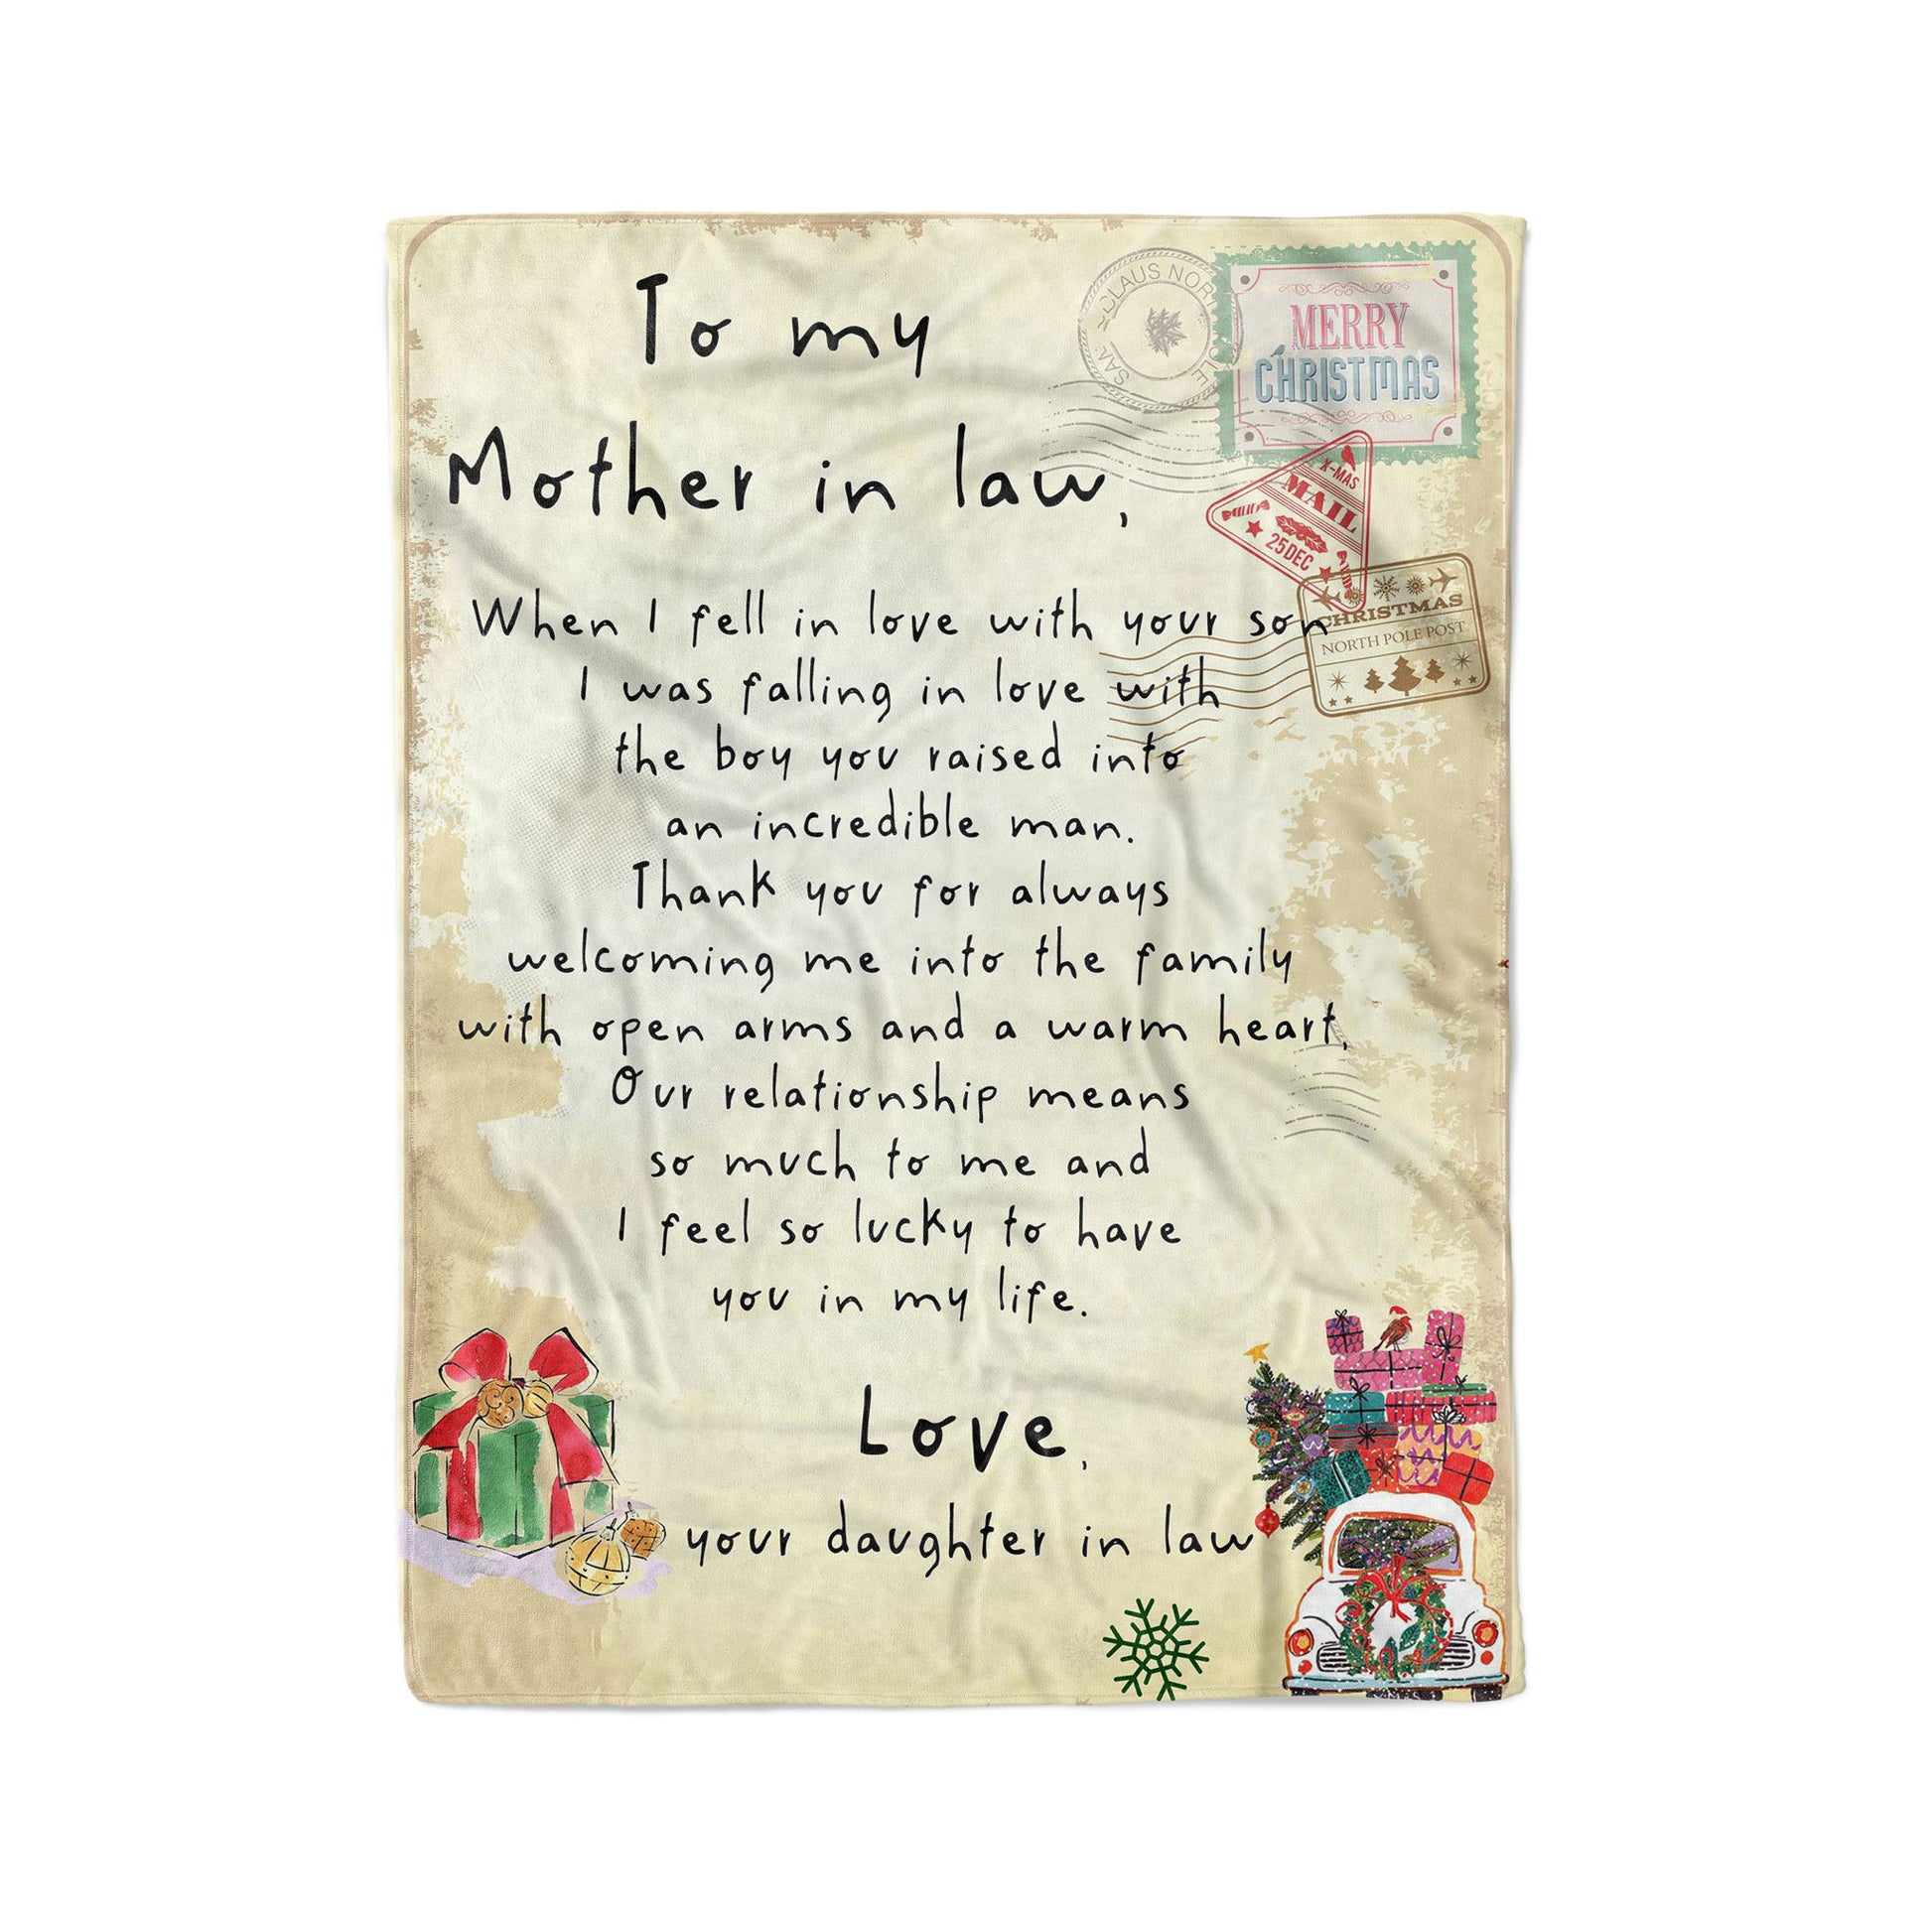 To my
Mother in law,
When I fell in love with your son
I was falling in love with
the boy you raised into
an incredible man.
Thank you for always
welcoming me into the family
with open arms and a warm heart,
Our relationship means
so much to me and
I feel so lucky to have
you in my life.
Love,
your daughter in law
CLAUS NORTH
MERRY
CHRISTMAS
X-MAS
MAIL
25DEC
CHRISTMAS
NORTH POLE POST